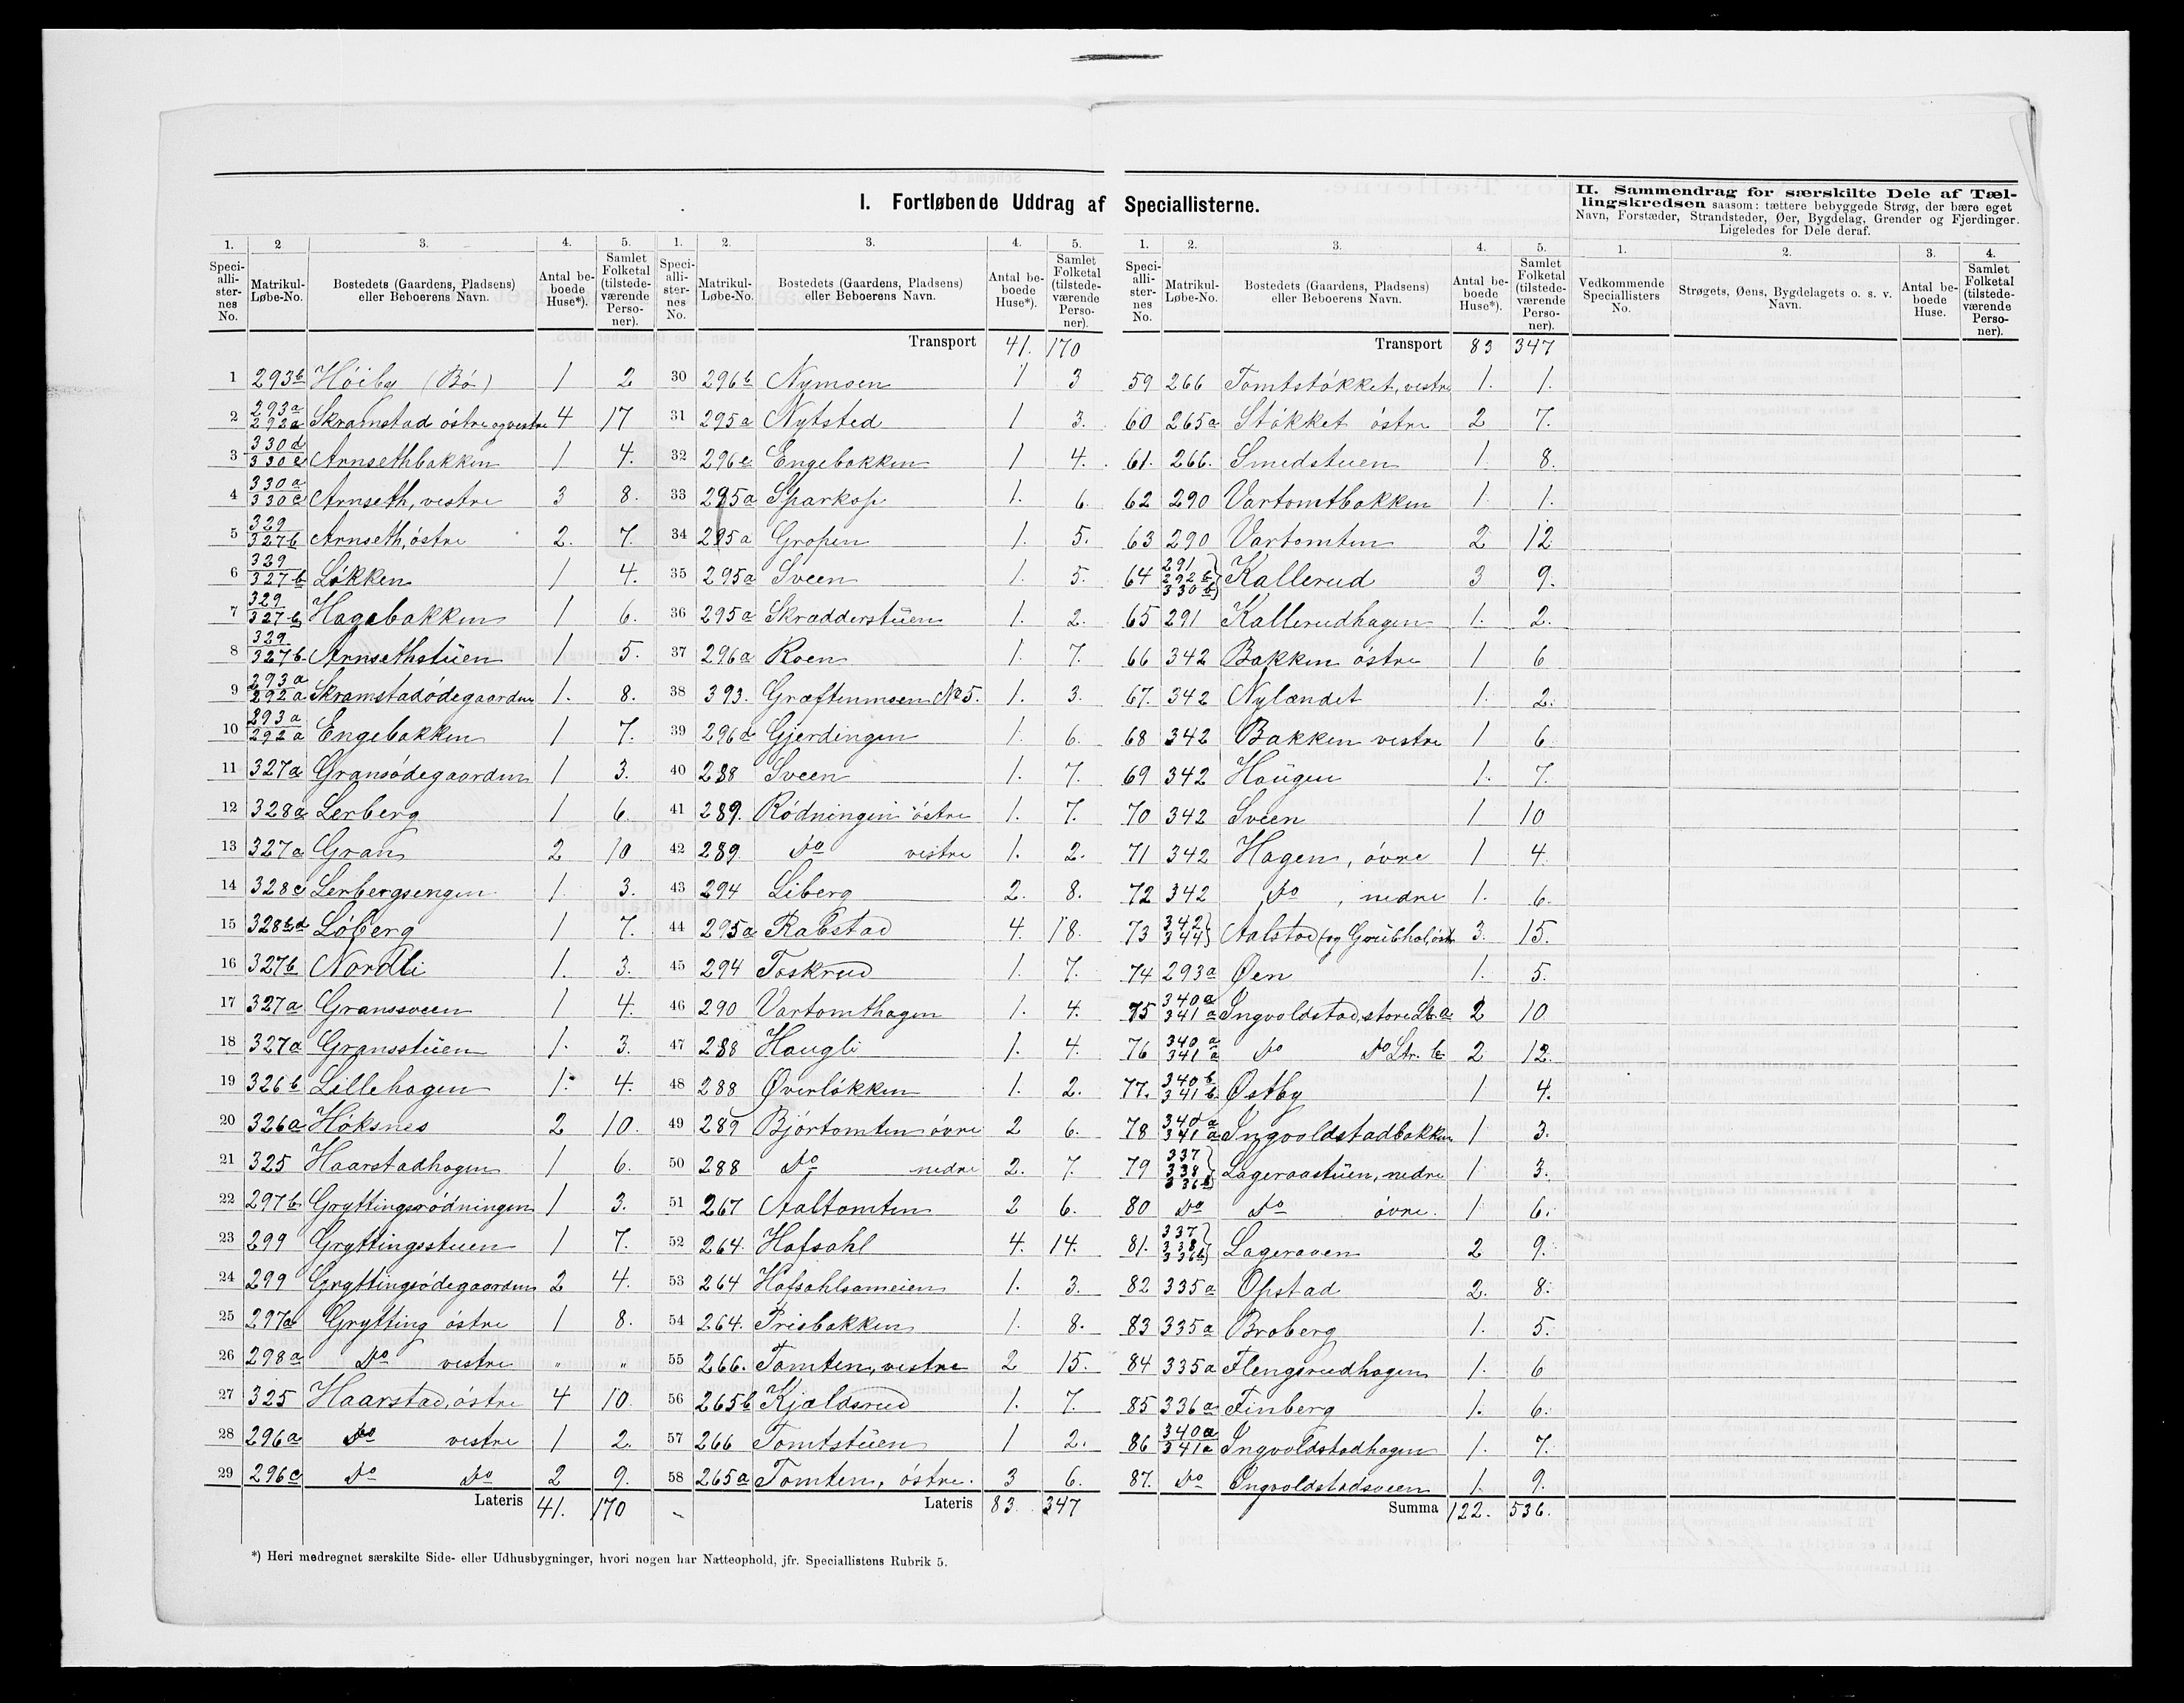 I. Fortløbende Uddrag af Speciallisterne.
1. 2 3. 4. 5.
Speciallisternes No. Matrikul-Løbe-No. Bostedets (Gaardens, Pladsens) eller Beboerens Navn. Antal beboede Huse*). Samlet Folketal (tilstedeværende Personer).
1 293b Höiby (Bö) 1 2
2 293a 292a Skramstad östre og vestre 4 17
3 330d 330e Arnsethbakken 1 4.
4 330a 330c Arnseth, vestre 3 8.
5 329 327b Arnseth, östre 2. 7.
6 329 327b Lökken 1 4.
7 329 327b Hagebakken 1 6.
8 329 327b. Arnsethstüen 1 5.
9 293a 292a Skramstadödegaarden 1. 8.
10 293a 292a Engebakken 1 7.
11 327a Gransödegaarden 1 3.
12 328a Lerberg 1 6.
13 327a Gran 2 10
14 328c Lerbergsengen 1. 3.
15 328b,d Löberg 1 7.
16 327b Nordli 1. 3.
17 327a Gransveen 1 4.
18 327a Gransstüen 1. 3.
19 326b Lillehagen 1. 4.
20 326a Höksnes 2 10.
21 325 Haarstadhagen 1 6.
22 297b Gryttingsrödningen 1 3.
23 299 Gryttingsstuen 1 7.
24 299 Gryttingsödegaarden 2 4.
25 297a Grytting östre 1 8.
26 298a Do vestre " "
27 325 Haarstad, östre 4 10.
28 296a Do vestre 1 2.
29 296c Do Do 2 9.
Lateris 41. 170
1. 2. 3. 4. 5.
Speciallisternes No. Matrikul-Løbe-No. Bostedets (Gaardens, Pladsens) eller Beboerens Navn. Antal beboede Huse*). Samlet Folketal (tilstedeværende Personer).
Transport 41. 170
30 296b Nymoen 1 3
31 295a Nytsted 1 3.
32 296e Engebakken 1 4.
33 295a Sparkop 1. 6
34 295a Gropen 1. 5.
35 295a Sveen 1. 5.
36 295a Skrædderstüen 1. 2.
37 296a Roen 1. 7.
38 393. Græftenmoen No 5. 1. 3.
39 296d Gjerdingen 1. 6.
40 288 Sveen 1. 7.
41 289. Rödningen östre 1. 7.
42 289 Do vestre 1. 2.
43 294 Liberg 2. 8.
44 295a Rabstad 4. 18.
45 294 Toskrud 1. 7.
46 290 Vartomthagen 1. 4.
47 288 Haugli 1. 4.
48 288 Øverlökken 1. 2.
49 289 Björtomten övre 2 6.
50 288 Do nedre 2. 7.
51 267 Aaltomten 2 6.
52 264. Hofsahl 4. 14.
53 264 Hofsahlsameien 1. 3.
54 264. Prisbakken 1. 8.
55 266. Tomten, vestre 2 15.
56 265b Kjældsrud 1. 7.
57 266 Tomtstüen 1 2.
58 265a Tomten, östre. 3 6.
Lateris 83. 347
1. 2. 3. 4. 5.
Speciallisternes No. Matrikul-Løbe-No. Bostedets (Gaardens, Pladsens) eller Beboerens Navn. Antal beboede Huse*). Samlet Folketal (tilstedeværende Personer).
Transport 83 347
59 266 Tomtstökket, vestre 1. 1.
60 265a Stökket östre 2 7.
61. 266. Smedstuen 1. 8.
62 290 Vartomtbakken 1. 1.
63 290 Vartomten 2 12
64 291 292b 330b Kallerud 3 9.
65 291 Kallerudhagen 1. 2.
66 342 Bakken östre 1 6
67. 342 Nylændet 1. 2.
68 342 Bakken vestre 1 6
69 342 Haügen 1. 7.
70 342 Sveen 1 10
71 342 Hagen, övre 1 4.
72 342 Do , nedre 1. 6.
73 342 344 Aalstad 3. 15.
74 293a Øen 1. 5.
75 340a 341a Ingvoldstad, store Ltr. a 2 10
76 340a 341a Do Do Ltr. b 2 12.
77. 340b 341b. Østby 1 4.
78 340a 341a Ingvoldstadbakken 1 3.
79 337 338 336b Lageraastüen, nedre 1 3.
80 Do Do övre. 1 6.
81. 337 338 336b Lageraaen 2 9.
82 335a Opstad 2. 8.
83 335a Broberg 1. 5.
84 335a Flengsrudhagen 1. 6
85 336a Finberg 1. 6.
86 340a 341a Ingvoldstadhagen 1. 7.
87. Do Ingvoldstadsveen 1. 9.
Summa 122. 536.
II. Sammendrag for særskilte Dele af Tællingskredsen saasom: tættere bebyggede Strøg, der bære eget
Navn, Forstæder, Strandsteder, Øer, Bygdelag, Grender og Fjerdinger.
Ligeledes for Dele deraf.
1. 2. 3. 4.
Vedkommende Speciallisters No. Strøgets, Øens, Bygdelagets o. s. v. Navn. Antal beboede Huse. Samlet Folketal (tilstedeværende Personer).
*) Heri medregnet særskilte Side- eller Udhusbygninger, hvori nogen har Natteophold, jfr. Speciallistens Rubrik 5.